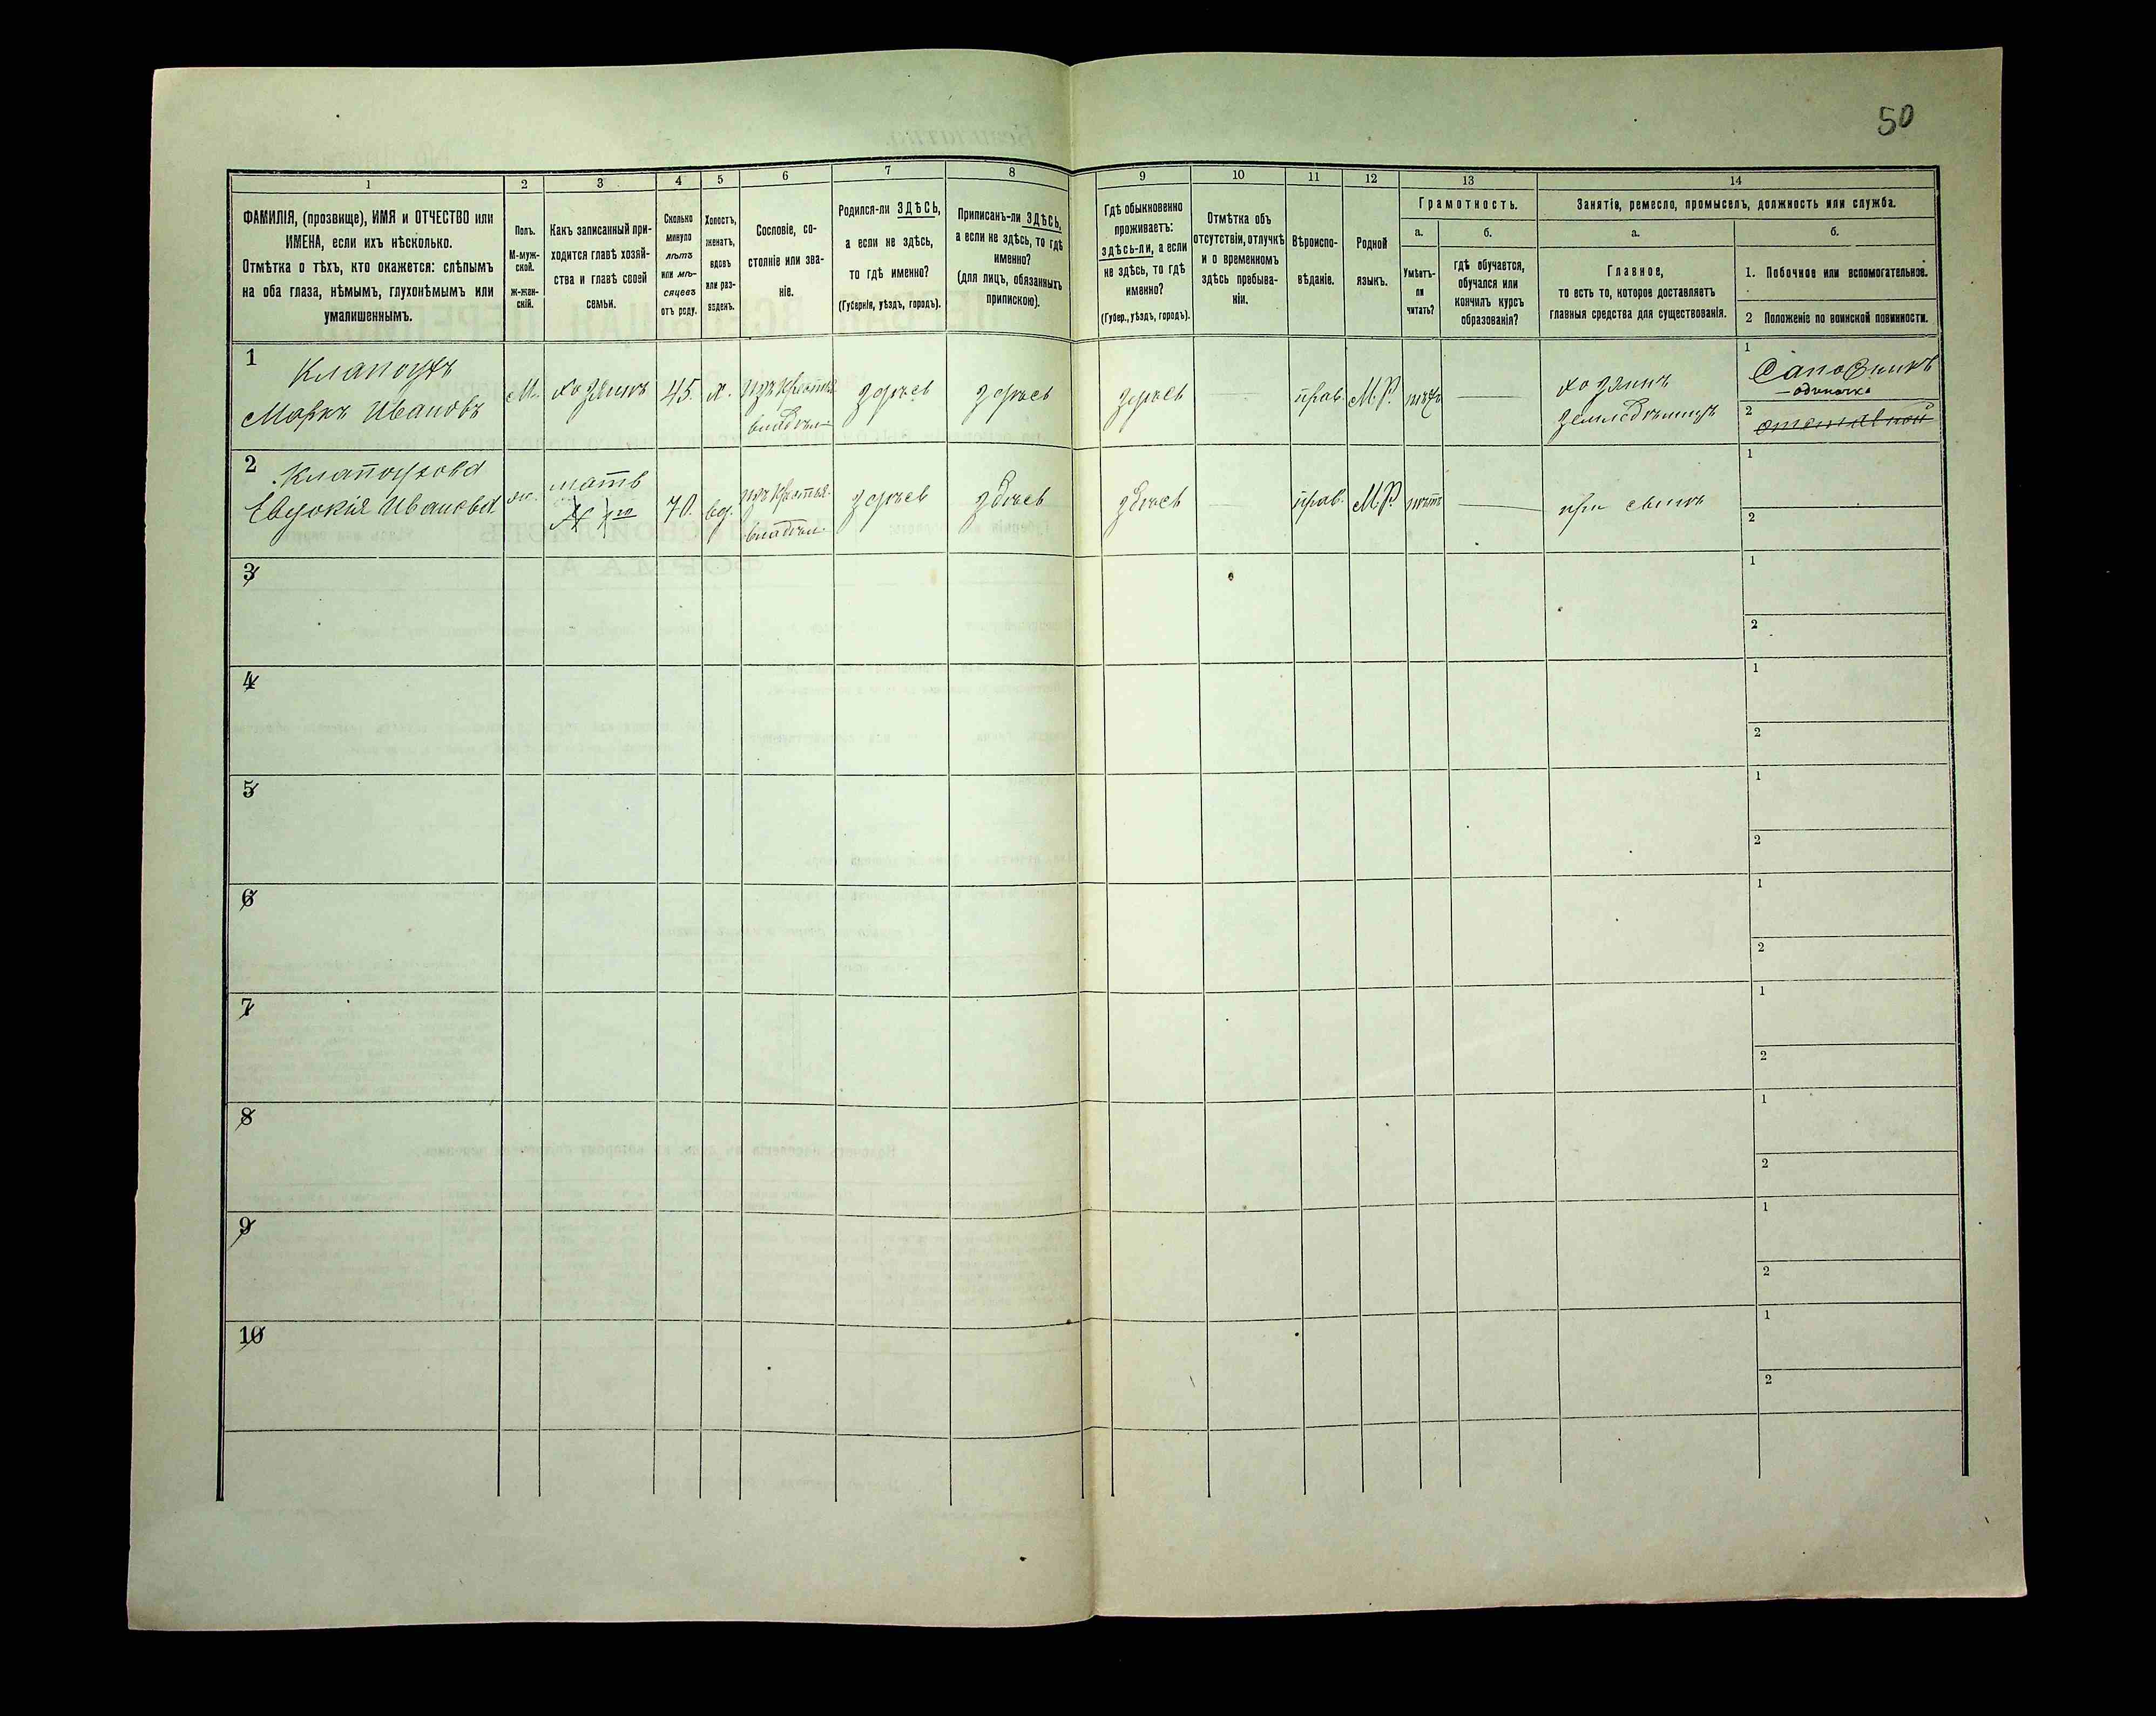 50
1
2
3
4
5
6
7
8
9
10
11
12
13
14
ФАМИЛІЯ, (прозвище), ИМЯ и ОТЧЕСТВО или
ИМЕНА, если ихъ нѣсколько.
Отмѣтка о тѣхъ, кто окажется: слѣпымъ
на оба глаза, нѣмымъ, глухонѣмымъ или
умалишеннымъ.
Полъ.
М-муж-
ской.
ж-жен-
скій.
Какъ записанный при-
ходится главѣ хозяй-
ства и главѣ своей
семьи.
Сколько
минуло
лѣтъ
или мѣ-
сяцевъ
отъ роду.
Холостъ,
женатъ,
вдовъ
или раз-
веденъ.
Сословіе, со-
стояніе или зва-
ніе.
Родился-ли ЗДѢСЬ,
а если не здѣсь,
то гдѣ именно?
(Губернія, уѣздъ, городъ).
Приписанъ-ли ЗДѢСЬ,
а если не здѣсь, то гдѣ
именно?
(для лицъ, обязанныхъ
припискою).
Гдѣ обыкновенно
проживаетъ:
здѣсь-ли, а если
не здѣсь, то гдѣ
именно?
(Губер., уѣздъ, городъ).
Отмѣтка объ
отсутствіи, отлучкѣ
и о временномъ
здѣсь пребыва-
ніи.
Вѣроиспо-
вѣданіе.
Родной
языкъ.
Грамотность.
а.
Умѣетъ-
ли
читать?
б.
гдѣ обучается,
обучался или
кончилъ курсъ
образованія?
Занятіе, ремесло, промыселъ, должность или служба.
а.
Главное,
то есть то, которое доставляетъ
главныя средства для существованія.
б.
1. Побочное или вспомогательное.
2 Положеніе по воинской повинности.
1
Клапоухъ
Маркъ Ивановъ
М.
хозяинъ
45.
х.
изъ крестья
владѣл
здѣсь
здѣсь
здѣсь
прав.
М.Р.
нѣтъ
хозяинъ
земледѣлецъ
1
Сапожникъ
одиночка
2
2
Клапоухова
Евдокія Иванова
ж.
мать
70.
вд.
изъ крестья.
владѣл
здѣсь
здѣсь
здѣсь
прав.
М.Р.
нѣтъ
при сынѣ
1
2
3
1
2
4
1
2
5
1
2
6
1
2
7
1
2
8
1
2
9
1
2
10
1
2